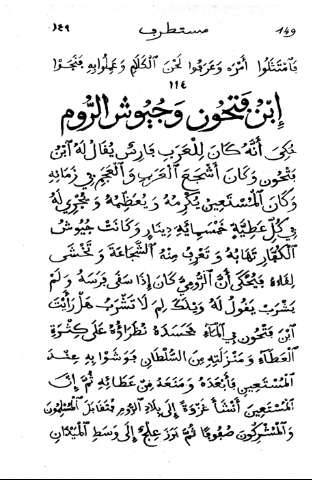 149 مستطرف ١٤٩
فَامْتَثَلُوا أَمْرَهُ وَعَرَفُوا لَحْنَ الْكَلَامِ وَعَمِلُوا بِهِ فَنَجَوْا
١١٤
إِبْنُ فَتْحُون وَجُيُوشُ الرُّوم
حُكِيَ أَنَّهُ كَانَ لِلْعَرَبِ فَارِسٌ يُقَالُ لَهُ ابْنُ
فَتْحُونٍ وَكَانَ أَشْجَعَ الْعَرَبِ وَالْعَجَمِ فِي زَمَانِهِ
وَكَانَ الْمُسْتَعِينُ يُكْرِمُهُ وَيُعَظِّمُهُ وَيُجْرِي لَهُ
فِي كُلِّ عَطِيَّةٍ خَمْسَمِائَةِ دِينَارٍ وَكَانَتْ جُيُوشُ
الْكُفَّارِ تَهَابُهُ وَتَعْرِفُ مِنْهُ الشَّجَاعَةَ وَتَخْشَى
لِقَاءَهُ فَيُحْكَى أَنَّ الرُّومِيَّ كَانَ إِذَا سَقَى فَرَسَهُ وَلَمْ
يَشْرَبْ يَقُولُ لَهُ وَيْلَكَ لِمَ لَا تَشْرَبُ هَلْ رَأَيْتَ
ابْنَ فَتْحُونَ فِي الْمَاءِ فَحَسَدَهُ نُظَرَاؤُهُ عَلَى كَثْرَةِ
الْعَطَاءِ وَمَنْزِلَتِهِ مِنَ السُّلْطَانِ فَوَشَوْا بِهِ عِنْدَ
الْمُسْتَعِينِ فَأَبْعَدَهُ وَمَنَعَهُ مِنْ عَطَائِهِ ثُمَّ إِنَّ
الْمُسْتَعِينَ أَنْشَأَ غَزْوَةً إِلَى بِلَادِ الرُّومِ فَتَقَابَلَ الْمُسْلِمُونَ
وَالْمُشْرِكُونَ صُفُوفًا ثُمَّ بَرَزَ عِلْجٌ إِلَى وَسَطِ الْمَيْدَانِ